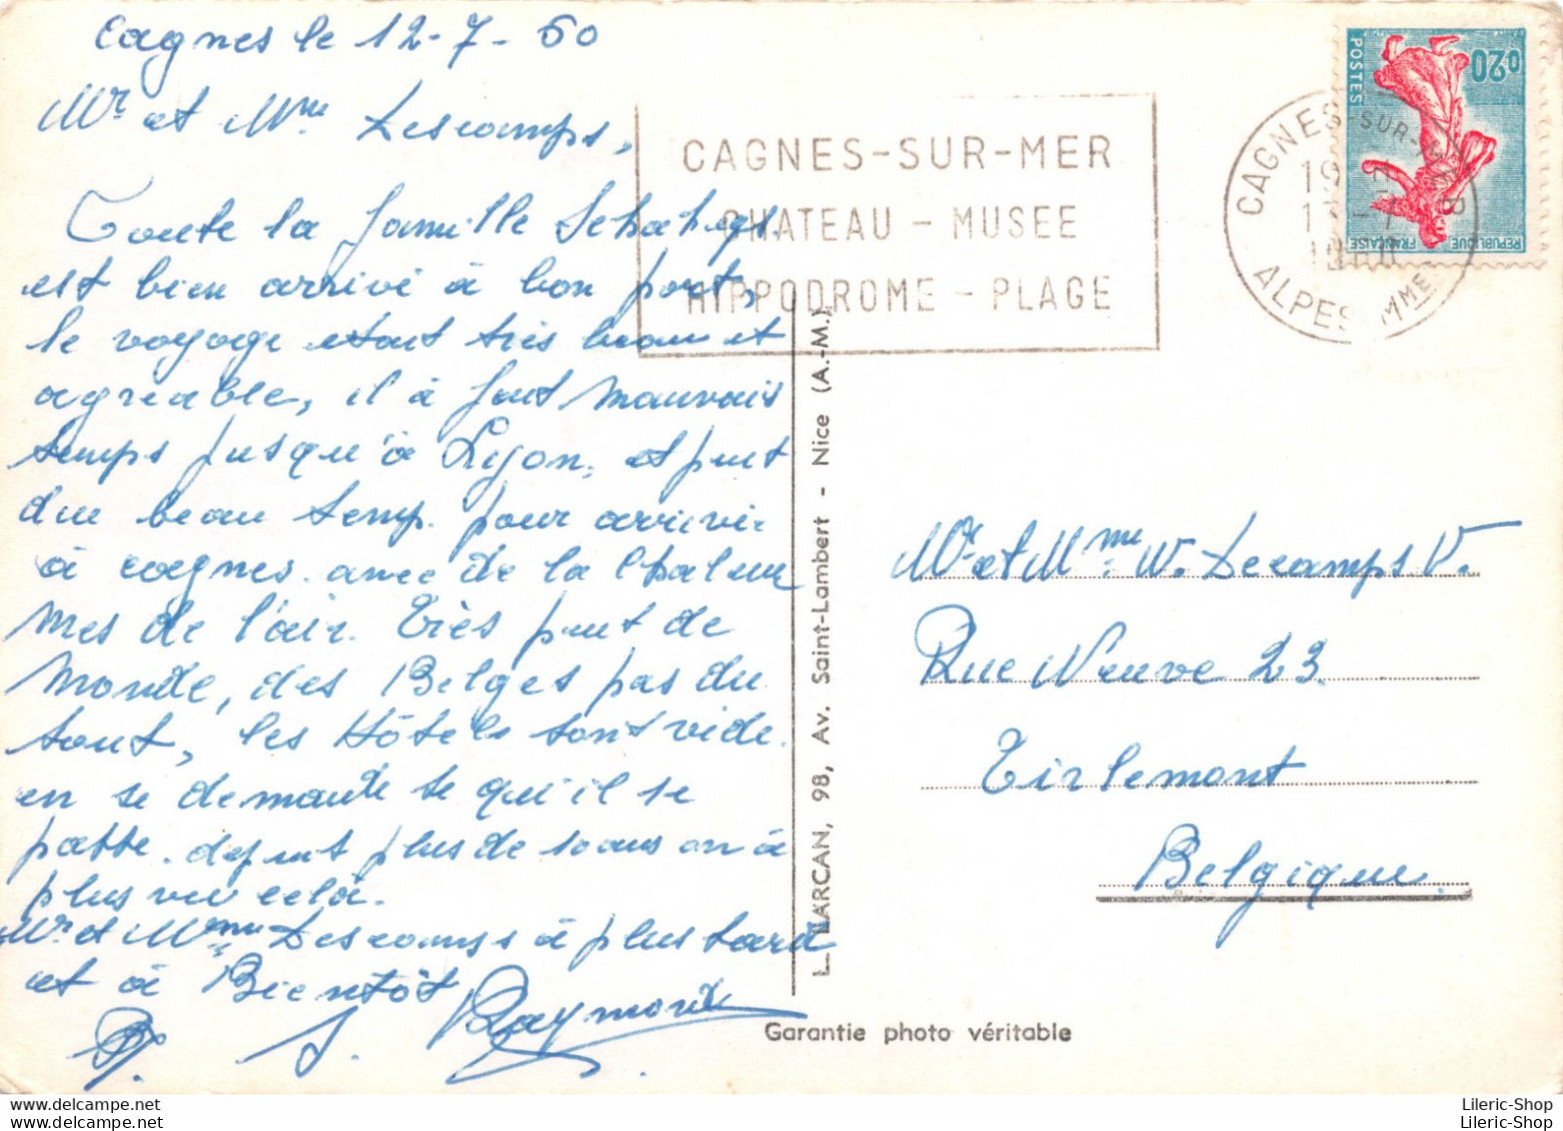 Cagnes le 12-7-60
Mr et Mme Descamps,
Toute la famille
est bien arrivé à bon port,
le voyage etait très beau et
agréable, il à fait mauvais
temps jusqu'à Lyon, et puit
du beau temp. pour arriver
à cagnes. avec de la Chaleur
mes de l'air. Très peut de
monde, des Belges pas du
tout, les Hôtels sont vide.
on se demande se qu'il se
passe. depuit plus de 10 ans on à
plus vu celà.
Mr et Mme Descamps à plus tard
et à Bientôt Raymond
CAGNES-SUR-MER
CHATEAU - MUSEE
HIPPODROME - PLAGE
CAGNES-SUR-MER
ALPES MMES
0,20
POSTES
REPUBLIQUE FRANÇAISE
L. LARCAN, 98, Av. Saint-Lambert - Nice (A.-M.)
Mr et Mme W. Decamps V.
Rue Neuve 23.
Tirlemont
Belgique.
Garantie photo véritable
Lileric-Shop
Lileric-Shop